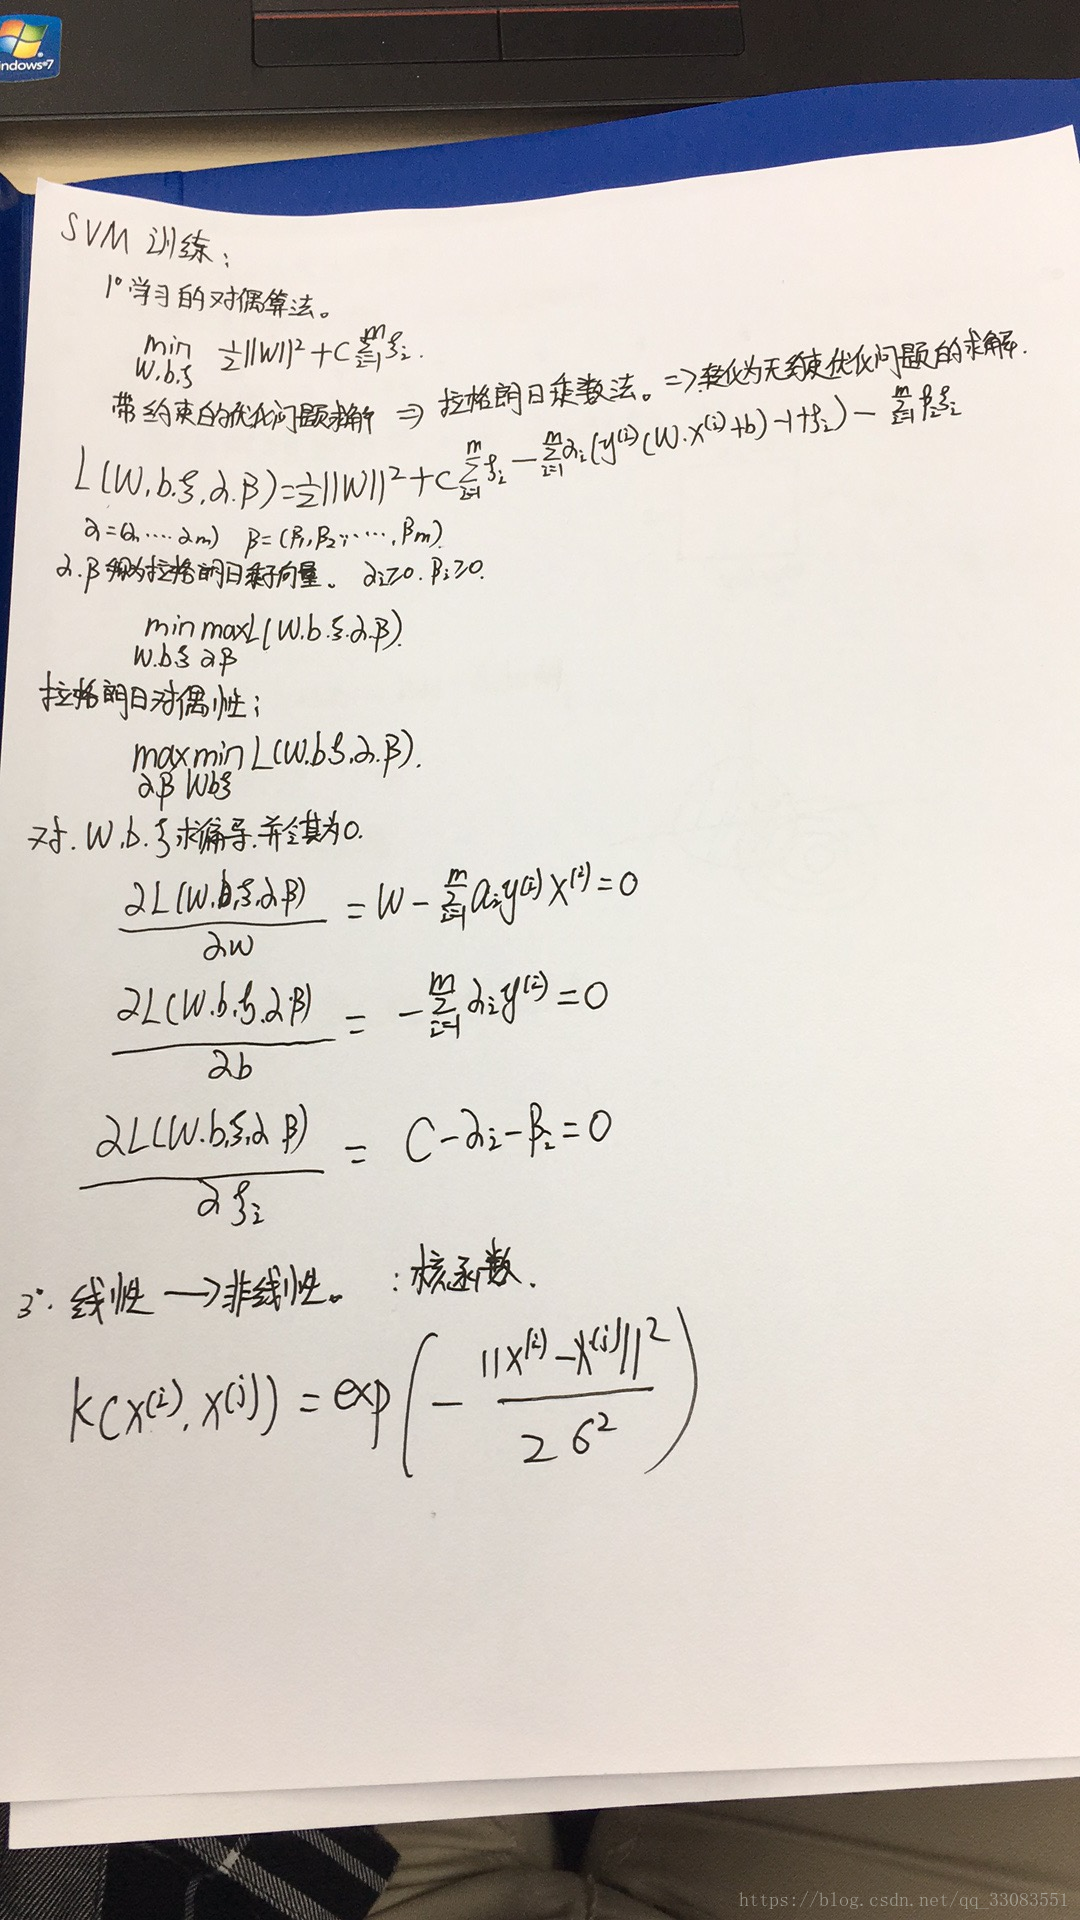 Windows 7
SVM 训练：
1° 学习的对偶算法。
min 1/2||W||² + C Σ_{i=1}^{m} ξ_i.
W.b.ξ
带约束的优化问题求解 ⇒ 拉格朗日乘数法。⇒ 转化为无约束优化问题的求解.
L(W.b.ξ,α.β) = 1/2||W||² + C Σ_{i=1}^{m} ξ_i − Σ_{i=1}^{m} α_i(y^(i)(W·x^(i)+b) −1+ξ_i) − Σ_{i=1}^{m} β_i ξ_i
α=(α₁....α_m) β=(β₁,β₂,....,β_m).
α.β 称为拉格朗日乘子向量。 α_i≥0. β_i≥0.
min max L(W.b.ξ.α.β).
W.b.ξ α β
拉格朗日对偶性；
max min L(W.b.ξ,α.β).
α.β W b ξ
对. W.b.ξ求偏导.并令其为0.
∂L(W.b,ξ,α.β)
/ ∂w = W − Σ_{i=1}^{m} α_i y^(i) x^(i) = 0
∂L(W.b.ξ.α.β)
/ ∂b = − Σ_{i=1}^{m} α_i y^(i) = 0
∂L(W.b,ξ,α β)
/ ∂ξ_i = C − α_i − β_i = 0
3°. 线性 → 非线性。 : 核函数.
K(x^(i), x^(j)) = exp(− ||x^(i) − x^(j)||² / 2σ²)
https://blog.csdn.net/qq_33083551